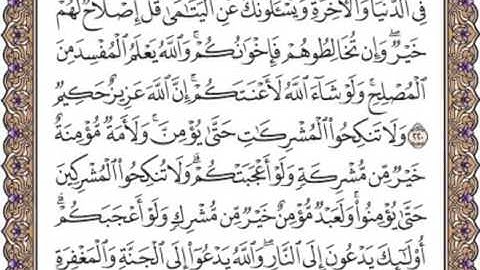 فِي ٱلدُّنۡيَا وَٱلۡأٓخِرَةِۗ وَيَسۡـَٔلُونَكَ عَنِ ٱلۡيَتَٰمَىٰۖ قُلۡ إِصۡلَاحٞ لَّهُمۡ
خَيۡرٞۖ وَإِن تُخَالِطُوهُمۡ فَإِخۡوَٰنُكُمۡۚ وَٱللَّهُ يَعۡلَمُ ٱلۡمُفۡسِدَ مِنَ
ٱلۡمُصۡلِحِۚ وَلَوۡ شَآءَ ٱللَّهُ لَأَعۡنَتَكُمۡۚ إِنَّ ٱللَّهَ عَزِيزٌ حَكِيمٞ
٢٢٠ وَلَا تَنكِحُواْ ٱلۡمُشۡرِكَٰتِ حَتَّىٰ يُؤۡمِنَّۚ وَلَأَمَةٞ مُّؤۡمِنَةٌ
خَيۡرٞ مِّن مُّشۡرِكَةٖ وَلَوۡ أَعۡجَبَتۡكُمۡۗ وَلَا تُنكِحُواْ ٱلۡمُشۡرِكِينَ
حَتَّىٰ يُؤۡمِنُواْۚ وَلَعَبۡدٞ مُّؤۡمِنٌ خَيۡرٞ مِّن مُّشۡرِكٖ وَلَوۡ أَعۡجَبَكُمۡۗ
أُوْلَٰٓئِكَ يَدۡعُونَ إِلَى ٱلنَّارِۖ وَٱللَّهُ يَدۡعُوٓاْ إِلَى ٱلۡجَنَّةِ وَٱلۡمَغۡفِرَةِ